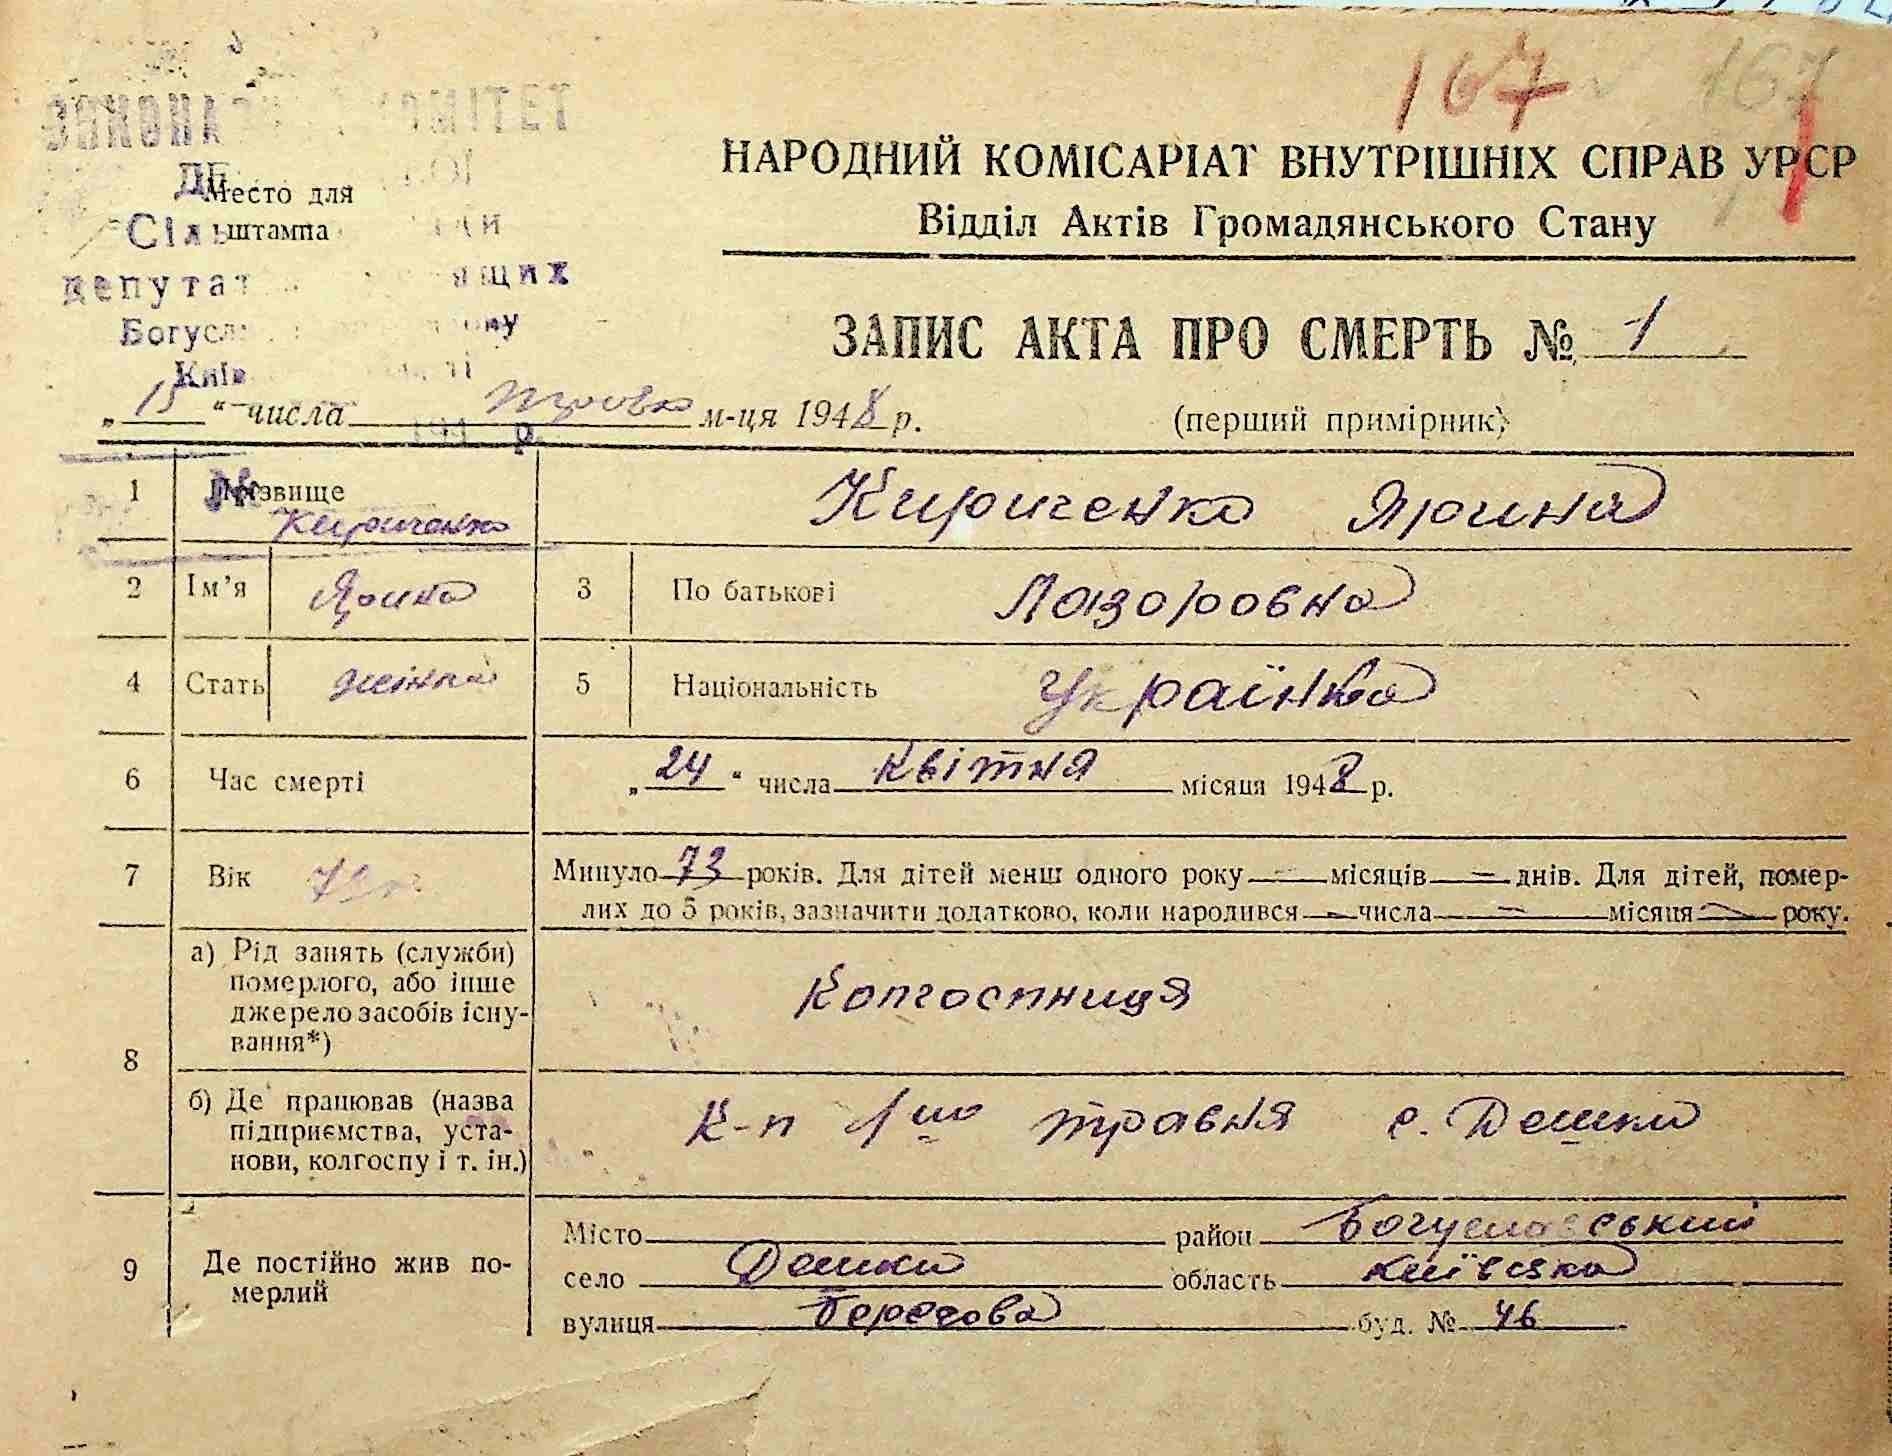 167 167
КОМІТЕТ
Место для
штампа
НАРОДНИЙ КОМІСАРІАТ ВНУТРІШНІХ СПРАВ УРСР
Відділ Актів Громадянського Стану
ЗАПИС АКТА ПРО СМЕРТЬ № 1
„ 15 “ числа травня м-ця 1948 р. (перший примірник)
1 Прізвище Кириченко Кириченко Ярина
2 Ім’я Ярина 3 По батькові Лазоровна
4 Стать жінка 5 Національність Українка
6 Час смерті „ 24 “ числа Квітня місяця 1948 р.
7 Вік 73 Минуло 73 років. Для дітей менш одного року — місяців — днів. Для дітей, помер-
лих до 5 років, зазначити додатково, коли народився — числа — місяця — року.
8 а) Рід занять (служби)
померлого, або інше
джерело засобів існу-
вання*)
Колгоспниця
б) Де працював (назва
підприємства, уста-
нови, колгоспу і т. ін.)
К-п 1шо травня с. Дешки
9 Де постійно жив по-
мерлий
Місто район Богуславський
село Дешки область Київська
вулиця Берегова буд. № 46